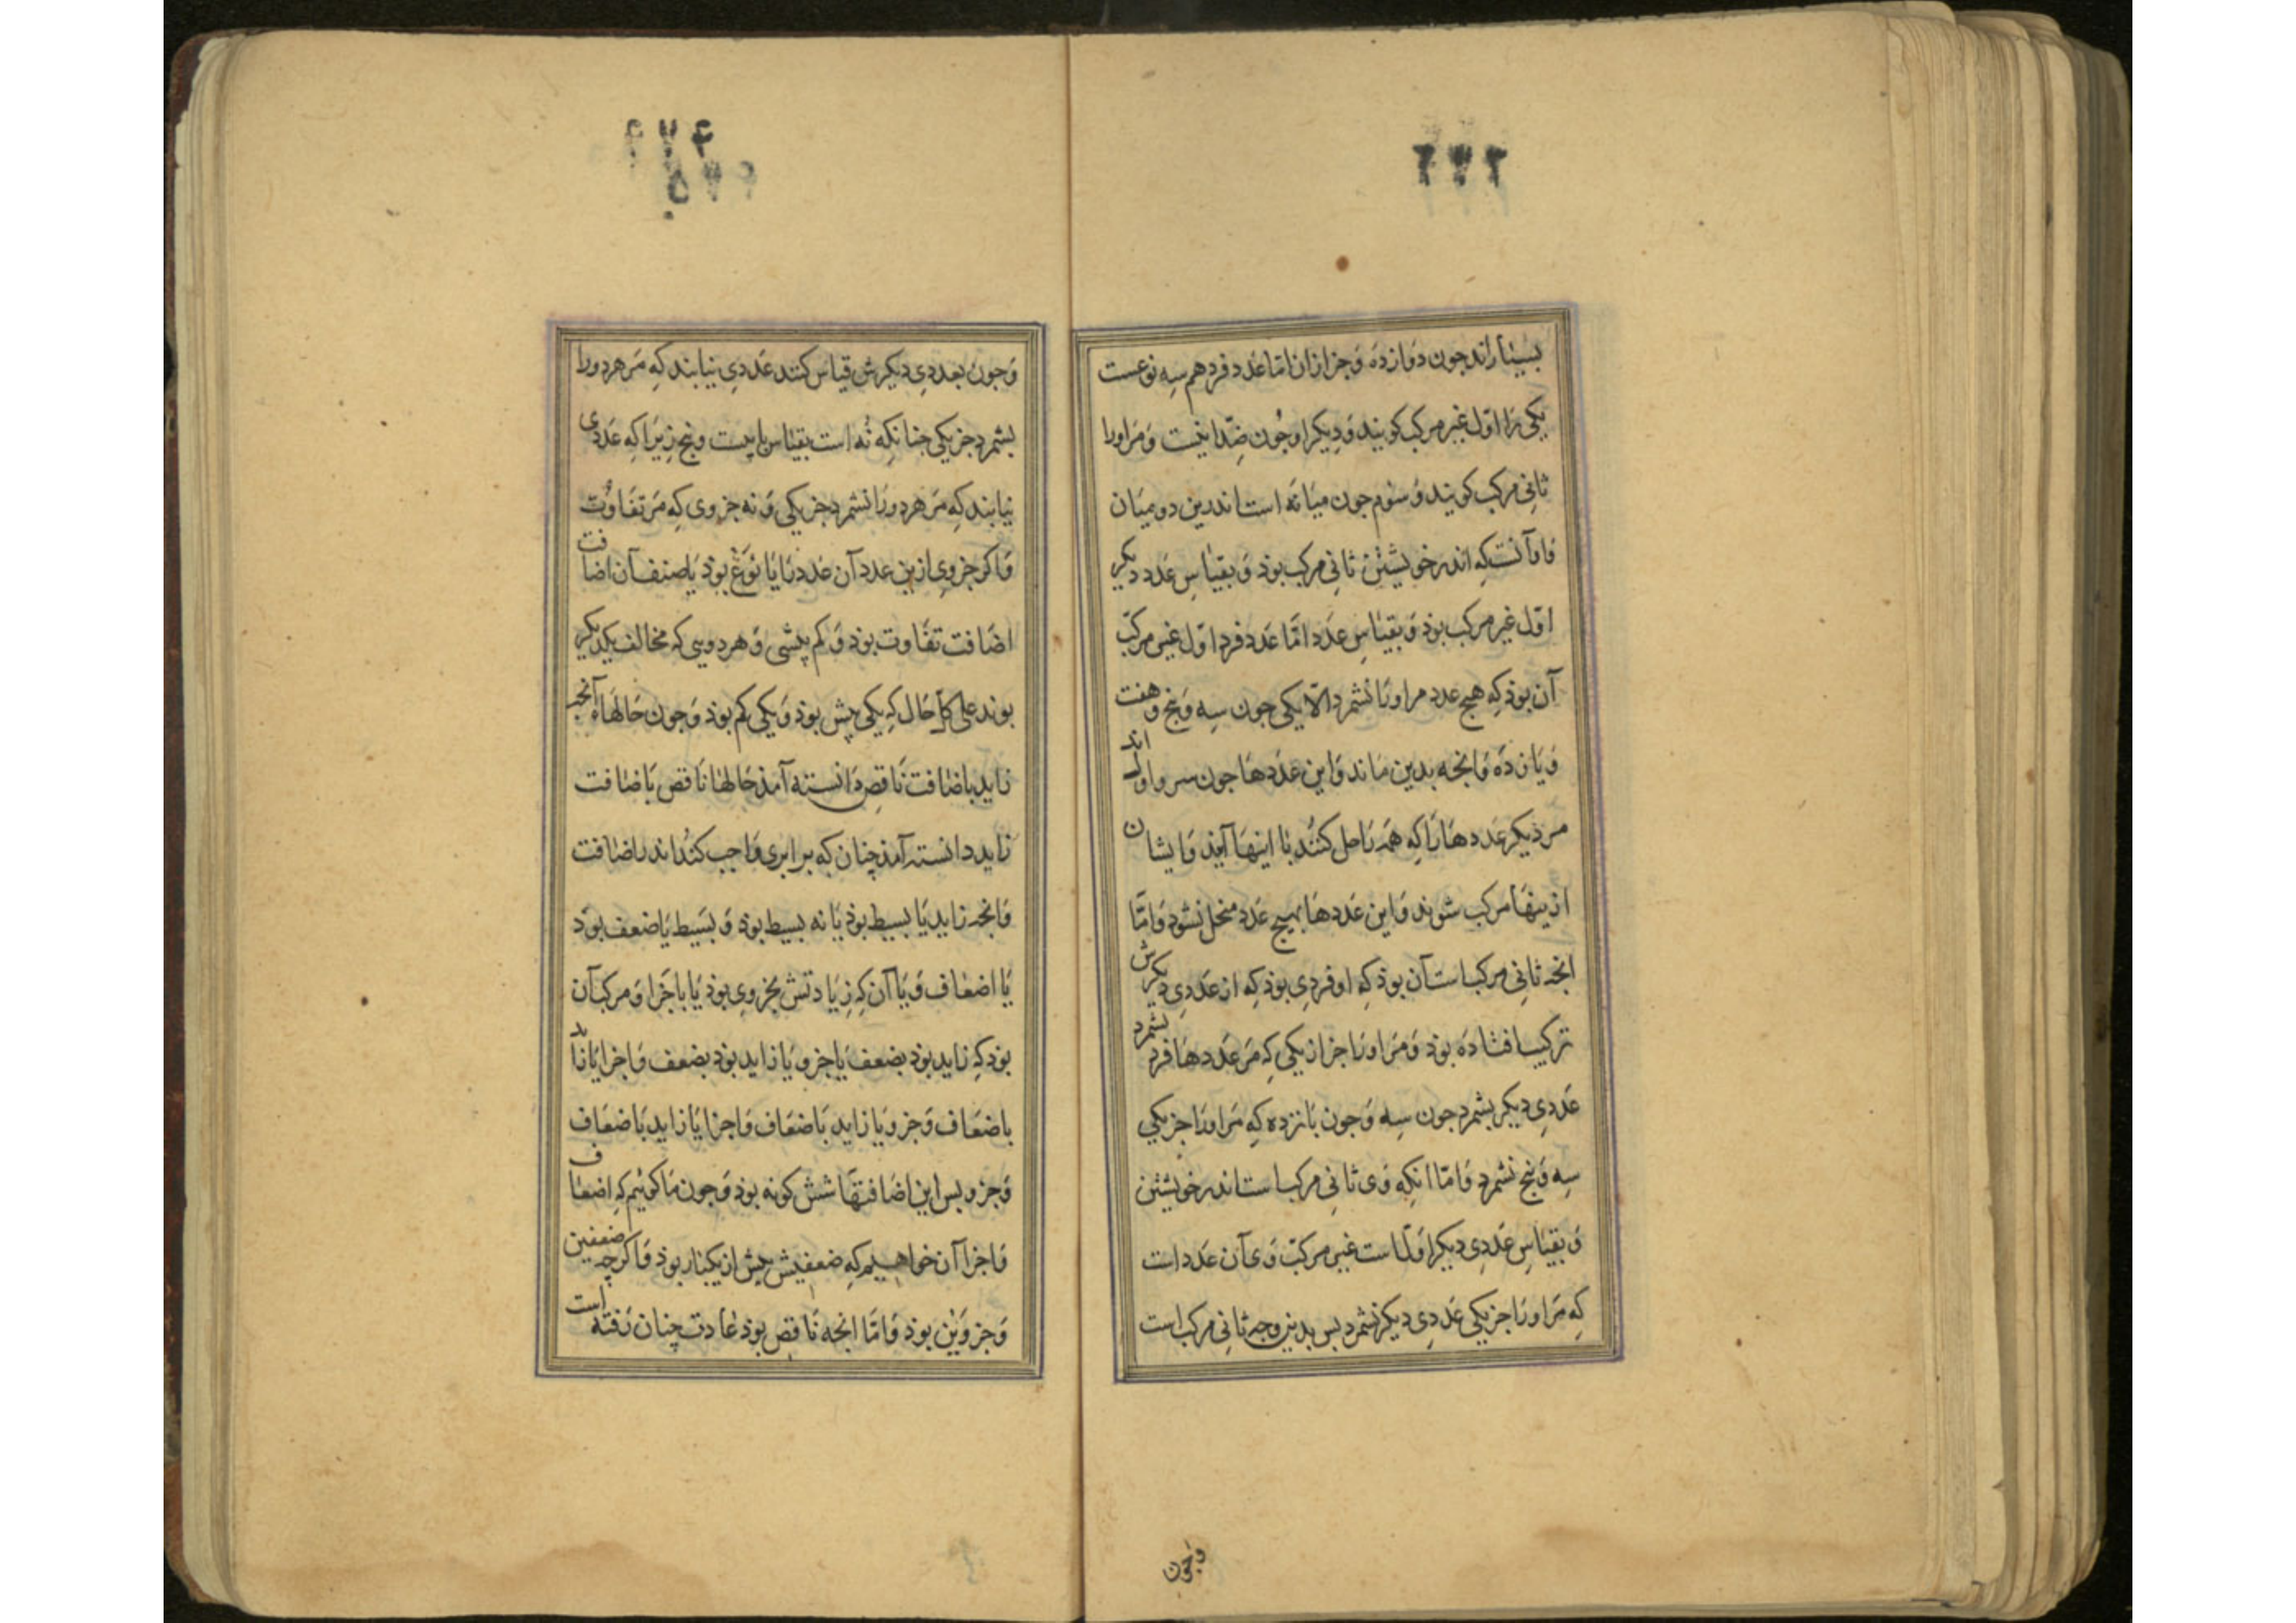 بسیاراند جون دوازده و جز ازان اما عدد فرد هم سه نوعست
یکی را اول غیر مرکب کویند و دیکر او جون ضد اینست و مر اورا
ثانی مرکب کویند و سوم جون میانه است اندرین دو میان
و او آنست که اندر خویشتن ثانی مرکب بوذ و بقیاس عدد دیکر
اول غیر مرکب بوذ و بقیاس عدد اما عدد فرد اول غیر مرکب
آن بوذ که هیچ عدد مر اورا نشمرد الا یکی جون سه و پنج و هفت
و یازده و انجه بدین ماند و این عددها جون سر و اول اند
مر دیکر عددها را که همه را حل کنند با اینها آیند و ایشان
ازینها مرکب شوند و این عددها بهیچ عدد منحل نشود و اما
انجه ثانی مرکب است آن بوذ که او فردی بوذ که از عددی دیکرش
ترکیب افتاده بوذ و مر اورا جز از یکی که مر عددها فرد بشمرد
عددی دیکر بشمرد جون سه و جون پانزده که مر اورا جز یکی
سه و پنج بشمرد و اما انکه وی ثانی مرکب است اندر خویشتن
و بقیاس عددی دیکر اول است غیر مرکب وی آن عدد است
که مر اورا جز یکی عددی دیکر بشمرد بس بدین وجه ثانی مرکب است
وجون
و جون بعددی دیکرش قیاس کنند عددی نیابند که مر هر دو را
بشمرد جز یکی جنانکه نه است بقیاس با بیست و پنج زیرا که عددی
نیابند که مر هر دو را بشمرد جز یکی و نه جزوی که مر تفاوت
و اکر جزوی ازین عدد آن عدد را یا نوع بوذ یا صنف آن اضافت
اضافت تفاوت بوذ و کم بیشی و هر دویی که مخالف یکدیکر
بوند علی کل حال که یکی بیش بوذ و یکی کم بوذ و جون حالهاء آنجه
زاید باضافت ناقص دانسته آمذ حالها ناقص باضافت
زاید دانسته آمذ چنان که برابری واجب کند اندر اضافت
و انجه زاید یا بسیط بوذ یا نه بسیط بوذ و بسیط یا ضعف بوذ
یا اضعاف و یا آن که زیادتش بجزوی بوذ یا باجزا و مرکب آن
بوذ که زاید بوذ بضعف یا جزو یا زاید بوذ بضعف و اجزا یا زاید
باضعاف و جزو یا زاید باضعاف و اجزا یا زاید باضعاف
و جزو بس این اضافتها شش کونه بوذ و جون ما کوئیم که اضعاف
و اجزا آن خواهیم که ضعفیش بیش از یکبار بوذ و اکرچه ضعفین
و جزوین بوذ و اما انجه ناقص بوذ عادت چنان رفته است